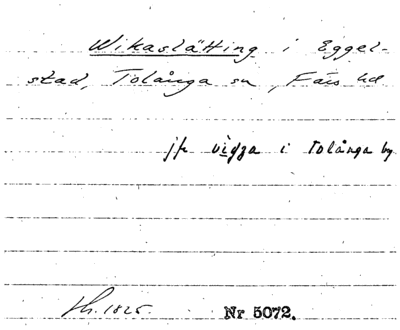 Wikaslätting i Eggel-
stad, Tolånga sn, Färs hd
jfr vigga i Tolånga by
Hs. 1825. Nr 5072.